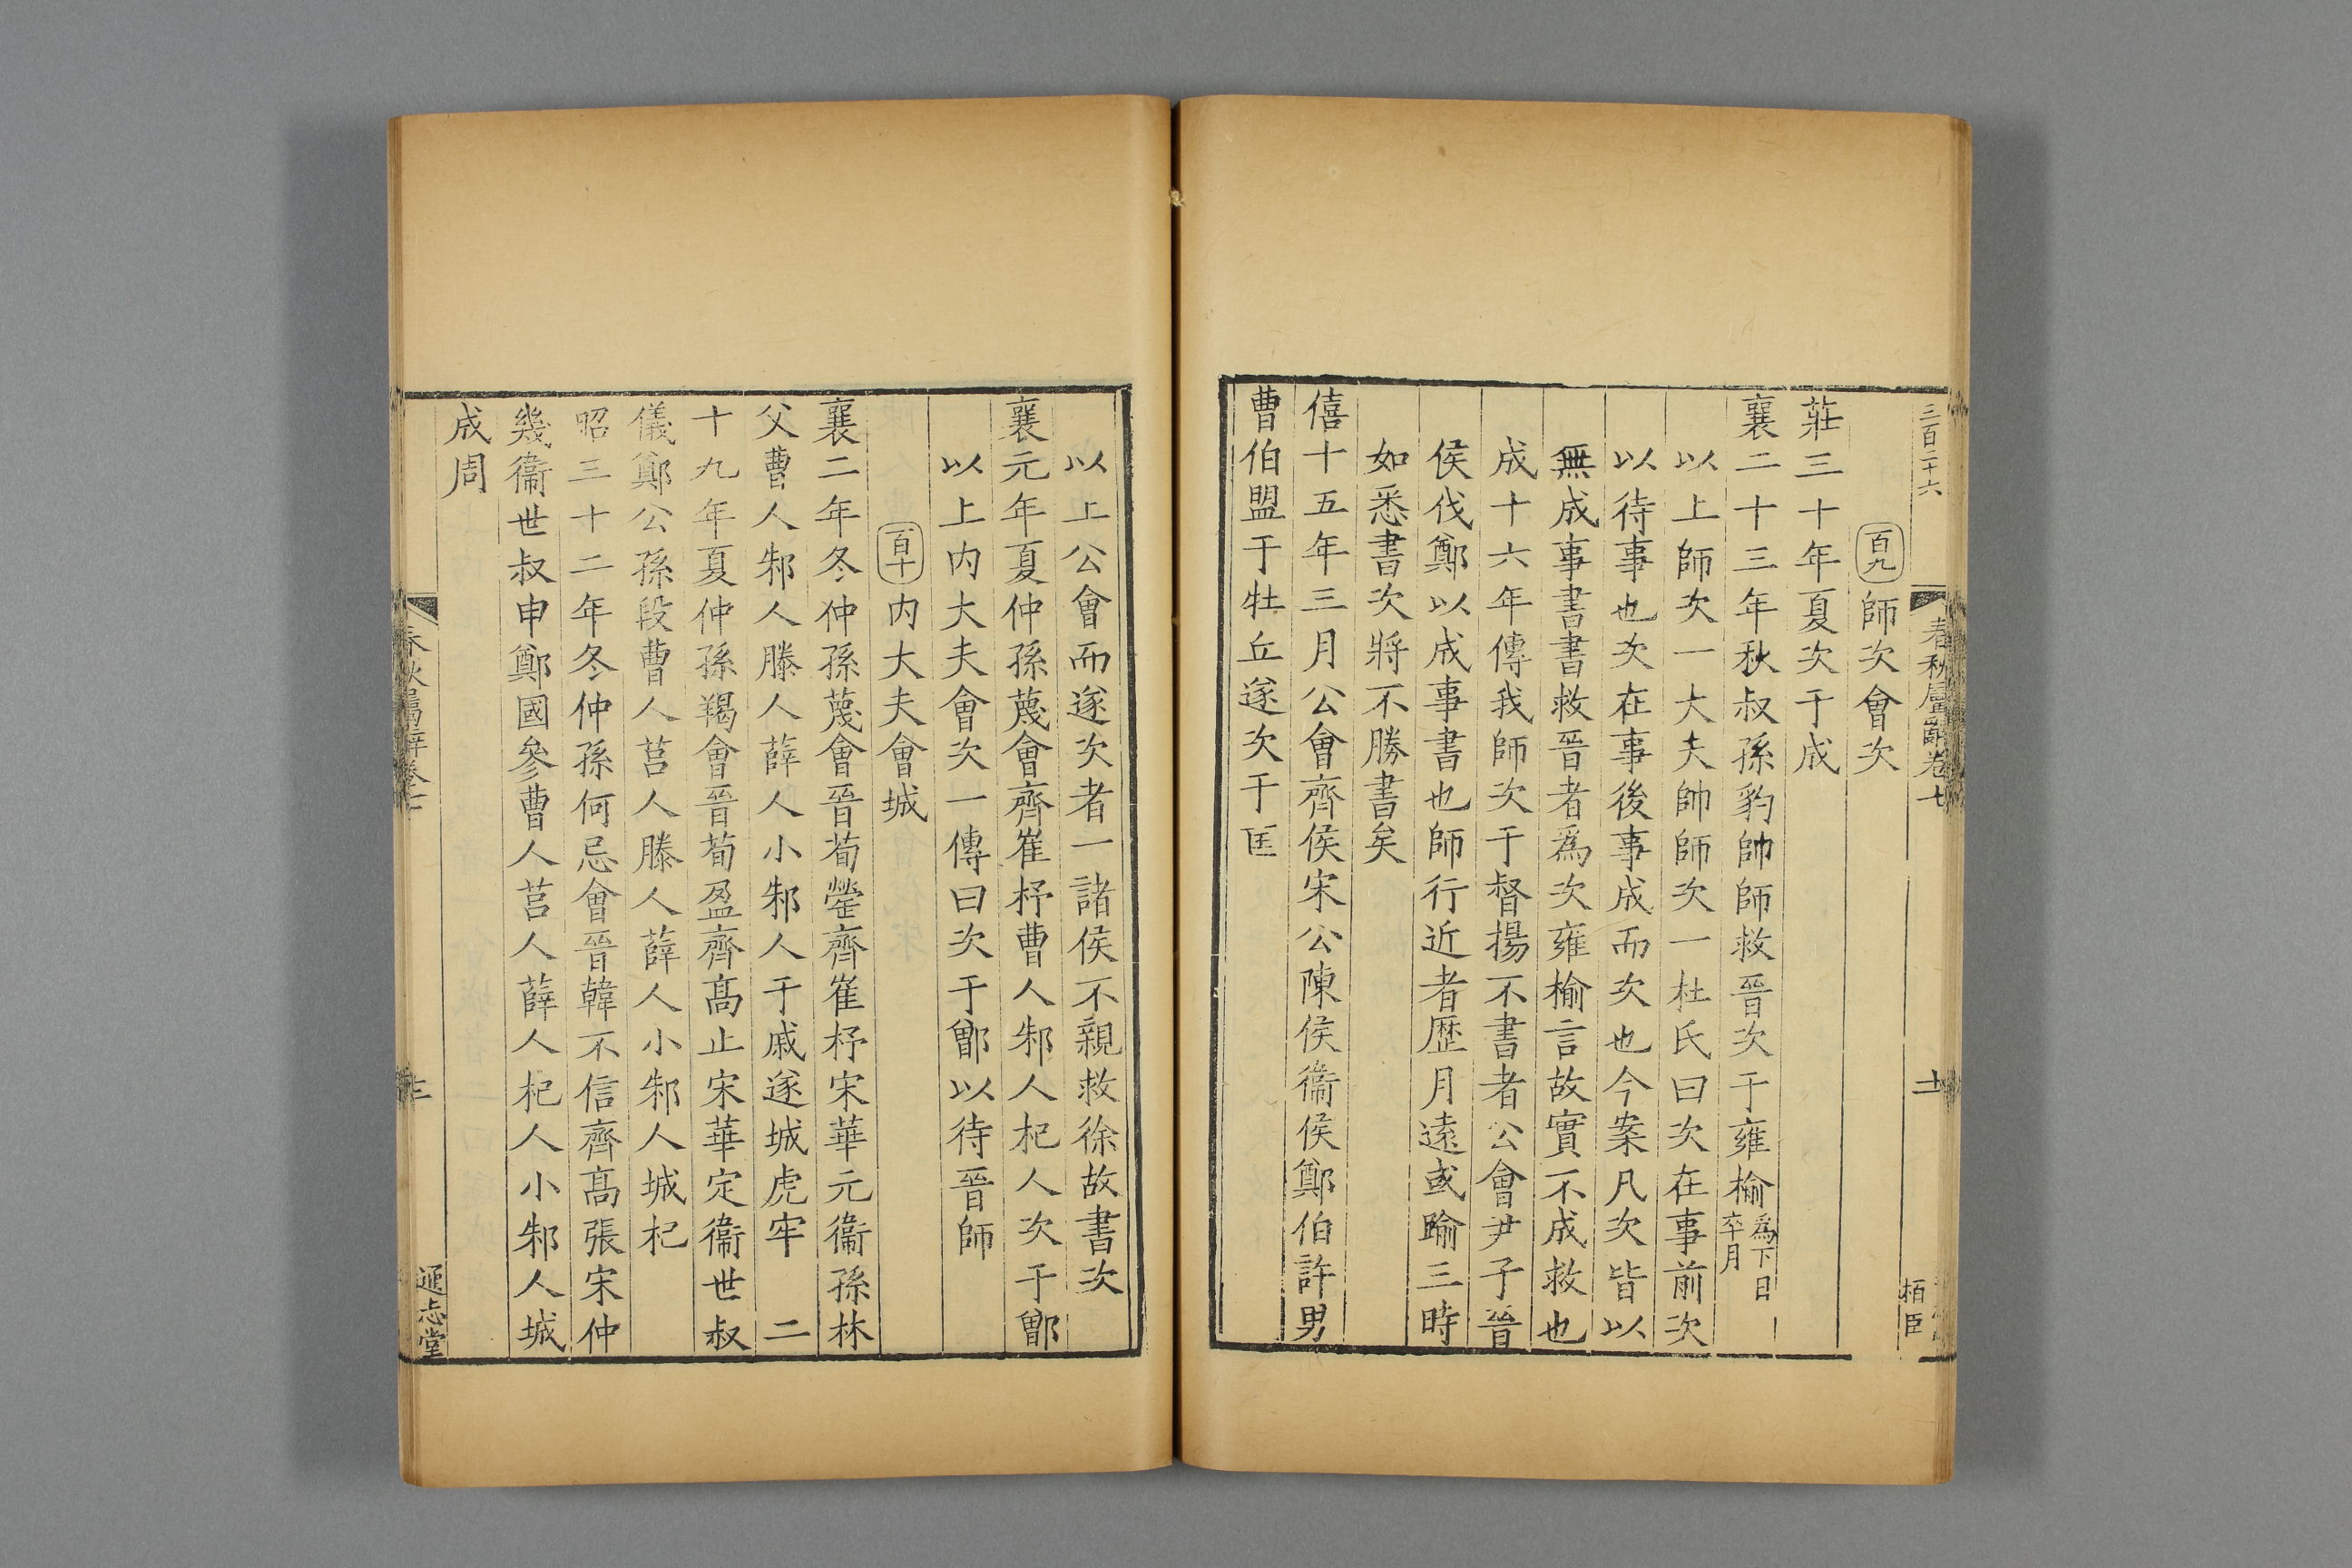 三百二十六
春秋屬辭卷七
十一
栢臣
百九 師次會次
莊三十年夏次于成
襄二十三年秋叔孫豹帥師救晉次于雍榆爲下日卒月
以上師次一大夫帥師次一杜氏曰次在事前次
以待事也次在事後事成而次也今案凡次皆以
無成事書書救晉者爲次雍榆言故實不成救也
成十六年傳我師次于督揚不書者公會尹子晉
侯伐鄭以成事書也師行近者歴月遠或踰三時
如悉書次將不勝書矣
僖十五年三月公會齊侯宋公陳侯衞侯鄭伯許男
曹伯盟于牡丘遂次于匡
以上公會而遂次者一諸侯不親救徐故書次
襄元年夏仲孫蔑會齊崔杼曹人邾人杞人次于鄫
以上内大夫會次一傳曰次于鄫以待晉師
百十 内大夫會城
襄二年冬仲孫蔑會晉荀罃齊崔杼宋華元衞孫林
父曹人邾人滕人薛人小邾人于戚遂城虎牢 二
十九年夏仲孫羯會晉荀盈齊髙止宋華定衞世叔
儀鄭公孫段曹人莒人滕人薛人小邾人城杞
昭三十二年冬仲孫何忌會晉韓不信齊髙張宋仲
幾衞世叔申鄭國參曹人莒人薛人杞人小邾人城
成周
春秋屬辭卷七
通志堂